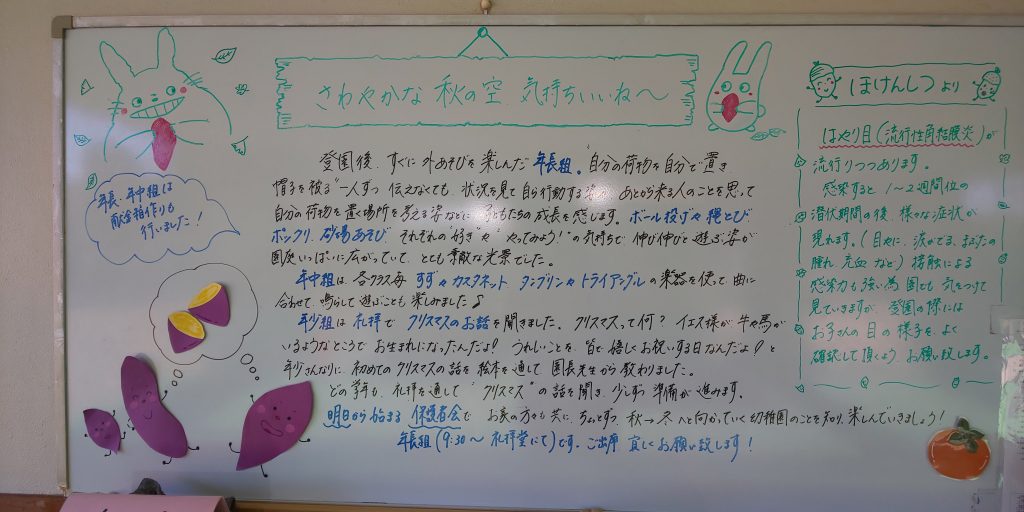 さわやかな 秋の空 気持ちいいね〜
年長、年中組は
献金箱作りも
行いました！
登園後、すぐに外あそびを楽しんだ 年長組。自分の荷物を自分で置き、
帽子を被る"一人ずつ 伝えなくても、状況を見て自ら行動する姿や あとから来る人のことを思って
自分の荷物を置く場所を考える姿などに 子どもたちの成長を感じます。ボール投げや縄とび
ポックリ、砂場あそび、それぞれの"好き"や"やってみよう！"の気持ちで 伸び伸びと遊ぶ姿が
園庭いっぱいに広がっていて、とても素敵な光景でした。
年中組は、各クラス毎 すずやカスタネット タンブリンやトライアングルの楽器を使って 曲に
合わせて、鳴らして遊ぶことも楽しみました♪
年少組は礼拝で クリスマスのお話を聞きました。クリスマスって何？イエス様が牛や馬が
いるようなところで お生まれになったんだよ！うれしいことを、皆で嬉しくお祝いする日なんだよ！と
年少さんなりに、初めてのクリスマスの話を絵本を通して 園長先生から教わりました。
どの学年も、礼拝を通して "クリスマス" の話を聞き、少しずつ準備が進みます。
明日から始まる 保護者会で お家の方々も共に、ちょっとずつ 秋→冬へと向かっていく幼稚園のことを知り、楽しんでいきましょう！
年長組(9:30〜 礼拝堂にて)です。ご出席 宜しくお願い致します！
ほけんしつより
はやり目(流行性角結膜炎)が
流行りつつあります。
感染すると 1〜2週間位の
潜伏期間の後、様々な症状が
現れます。(目やに、涙がでる、まぶたの
腫れ、充血 など) 接触による
感染力も強い為 園でも 気をつけて
見ていますが、登園の際には
お子さんの目の様子を、よく
確認して頂くよう、お願い致します。